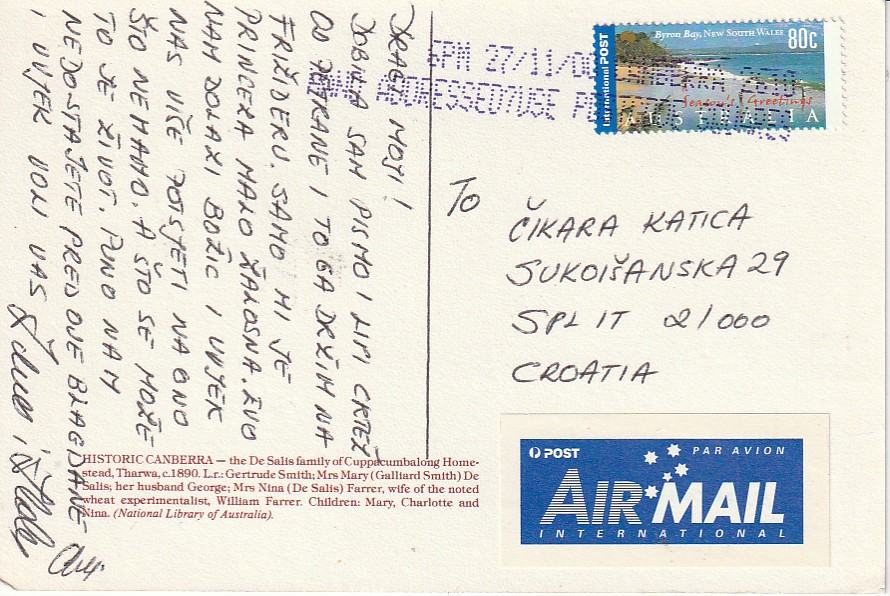 DRAGI MOJI!
DOBILA SAM PISMO I LIPI CRTEŽ
OD PETRANE I TO GA DRŽIM NA
FRIŽIDERU. SAMO MI JE
PRINCEZA MALO ŽALOSNA. EVO
NAM DOLAZI BOŽIĆ I UVJEK
NAS VIŠE POTSJETI NA ONO
ŠTO NEMAMO. A ŠTO SE MOŽE
TO JE ŽIVOT. PUNO NAM
NEDO-STAJETE PRED OVE BLAGDANE
I UVJEK VOLI VAS
HISTORIC CANBERRA — the De Salis family of Cuppacumbalong Home-
stead, Tharwa, c.1890. L.r.: Gertrude Smith; Mrs Mary (Galliard Smith) De
Salis; her husband George; Mrs Nina (De Salis) Farrer, wife of the noted
wheat experimentalist, William Farrer. Children: Mary, Charlotte and
Nina. (National Library of Australia).
6PM 27/11/00
ADDRESSED?USE
International POST
Byron Bay, NEW SOUTH WALES 80c
Season's Greetings
AUSTRALIA
To
ČIKARA KATICA
SUKOIŠANSKA 29
SPLIT 21000
CROATIA
POST PAR AVION
AIR MAIL
INTERNATIONAL